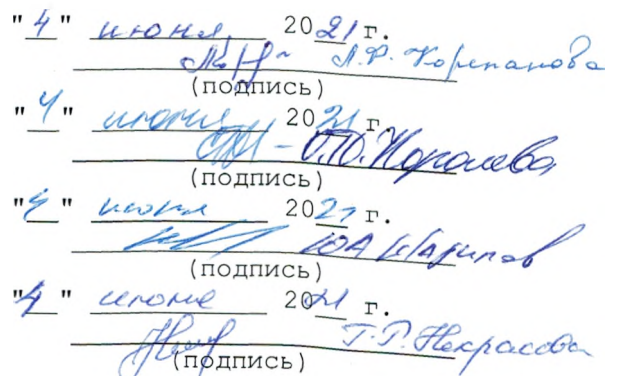 "4" июня 2021 г.
Л.Ф. Корепанова
(подпись)
"4" июня 2021 г.
О.Ю. Королева
(подпись)
"4" июня 2021 г.
ЮА
(подпись)
"4" июня 2021 г.
Некрасова
(подпись)